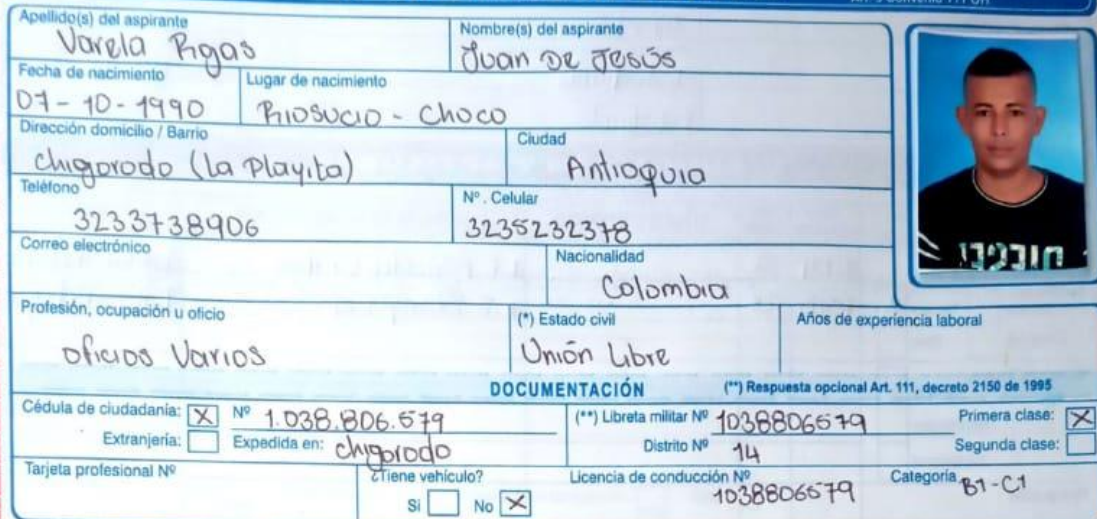 Apellido(s) del aspirante
Varela Rigas
Nombre(s) del aspirante
Juan De Jesús
Fecha de nacimiento
07-10-1990
Lugar de nacimiento
Riosucio - Choco
Dirección domicilio / Barrio
chigorodo (la Playita)
Ciudad
Antioquia
Teléfono
3233738906
Nº. Celular
3235232378
Correo electrónico
Nacionalidad
Colombia
Profesión, ocupación u oficio
oficios Varios
(*) Estado civil
Unión Libre
Años de experiencia laboral
DOCUMENTACIÓN
(**) Respuesta opcional Art. 111, decreto 2150 de 1995
Cédula de ciudadanía: X Nº 1.038.806.579
(**) Libreta militar Nº 1038806579 Primera clase: X
Extranjería: Expedida en: chigorodo
Distrito Nº 14 Segunda clase:
Tarjeta profesional Nº
¿Tiene vehículo?
Si No X
Licencia de conducción Nº
1038806579
Categoría B1-C1